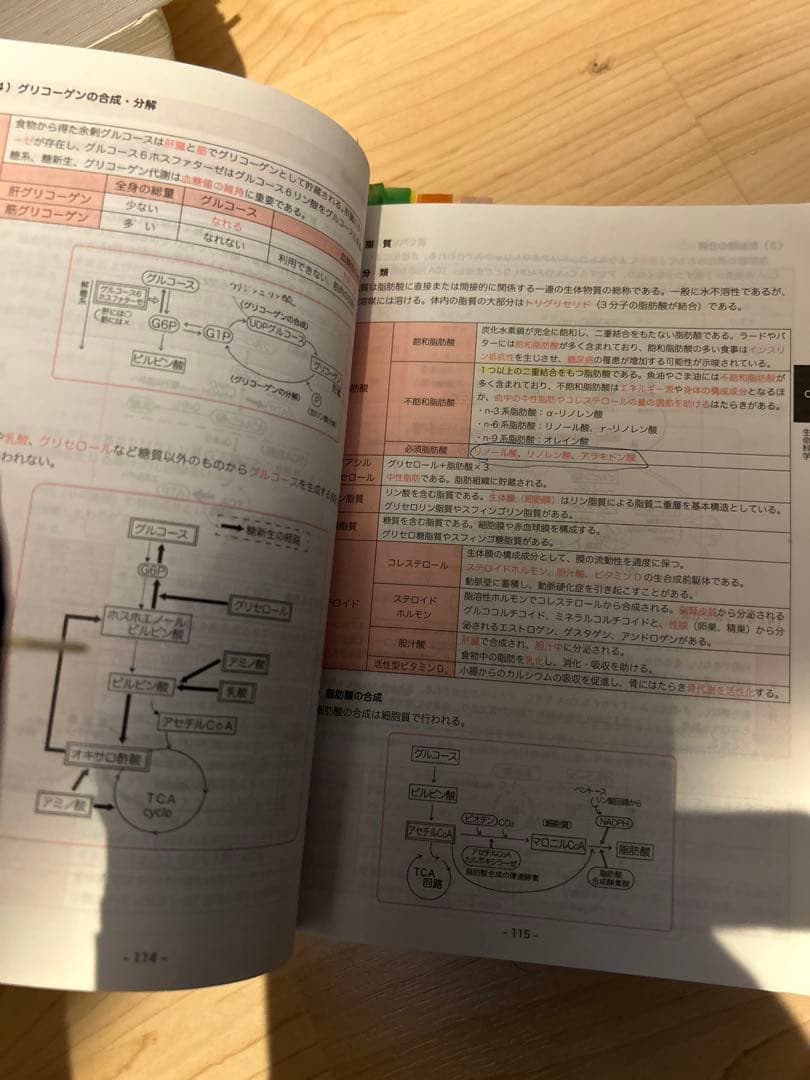 4) グリコーゲンの合成・分解
食物から得た余剰グルコースは肝臓と筋でグリコーゲンとして貯蔵される。
ーゼが存在し、グルコース6ホスファターゼはグルコース6リン酸をグルコース
糖系、糖新生、グリコーゲン代謝は血糖値の維持に重要である。
全身の総量
グルコース
肝グリコーゲン
少ない
なれる
筋グリコーゲン
多い
なれない
利用できない
グルコース
解糖系
グルコース6
ホスファターゼ
肝には○
筋には×
(グリコーゲンの合成)
UDPグルコース
G6P
G1P
グリコーゲン
ピルビン酸
(グリコーゲンの分解)
P
乳酸、グリセロールなど糖質以外のものからグルコースを生成する
われない。
グルコース
糖新生の経路
G6P
グリセロール
ホスホエノール
ピルビン酸
アミノ酸
ピルビン酸
乳酸
アセチルCoA
オキサロ酢酸
アミノ酸
TCA
cycle
- 114 -
脂質
分類
質は脂肪酸に直接または間接的に関係する一連の生体物質の総称である。一般に水不溶性であるが、
溶媒には溶ける。体内の脂質の大部分はトリグリセリド(3分子の脂肪酸が結合)である。
肪酸
飽和脂肪酸
炭化水素鎖が完全に飽和し、二重結合をもたない脂肪酸である。ラードやバ
ターには飽和脂肪酸が多く含まれており、飽和脂肪酸の多い食事はインスリ
ン抵抗性を生じさせ、糖尿病の罹患が増加する可能性が示唆されている。
不飽和脂肪酸
1つ以上の二重結合をもつ脂肪酸である。魚油やごま油には不飽和脂肪酸が
多く含まれており、不飽和脂肪酸はエネルギー源や身体の構成成分となるほ
か、血中の中性脂肪やコレステロールの量の調節を助けるはたらきがある。
・n-3系脂肪酸:α-リノレン酸
・n-6系脂肪酸:リノール酸、γ-リノレン酸
・n-9系脂肪酸:オレイン酸
必須脂肪酸
リノール酸、リノレン酸、アラキドン酸
アシル
セロール
グリセロール+脂肪酸×3
中性脂肪である。脂肪組織に貯蔵される。
ン脂質
リン酸を含む脂質である。生体膜(細胞膜)はリン脂質による脂質二重層を基本構造としている。
グリセロリン脂質やスフィンゴリン脂質がある。
脂質
糖質を含む脂質である。細胞膜や赤血球膜を構成する。
グリセロ糖脂質やスフィンゴ糖脂質がある。
ロイド
コレステロール
生体膜の構成成分として、膜の流動性を適度に保つ。
ステロイドホルモン、胆汁酸、ビタミンDの生合成前駆体である。
動脈壁に蓄積し、動脈硬化症を引き起こすことがある。
ステロイド
ホルモン
脂溶性ホルモンでコレステロールから合成される。副腎皮質から分泌される
グルココルチコイド、ミネラルコルチコイドと、性腺(卵巣、精巣)から分
泌されるエストロゲン、ゲスタゲン、アンドロゲンがある。
胆汁酸
肝臓で合成され、胆汁中に分泌される。
食物中の脂肪を乳化し、消化・吸収を助ける。
活性型ビタミンD₃
小腸からのカルシウムの吸収を促進し、骨にはたらき骨代謝を活性化する。
脂肪酸の合成
脂肪酸の合成は細胞質で行われる。
グルコース
ピルビン酸
アセチルCoA
ビオチン
CO₂
(細胞質)
ペントース
リン酸回路から
NADPH
マロニルCoA
脂肪酸
アセチルCoA
カルボキシラーゼ
脂肪酸合成の律速酵素
脂肪酸
合成酵素群
TCA
回路
- 115 -
生命科学